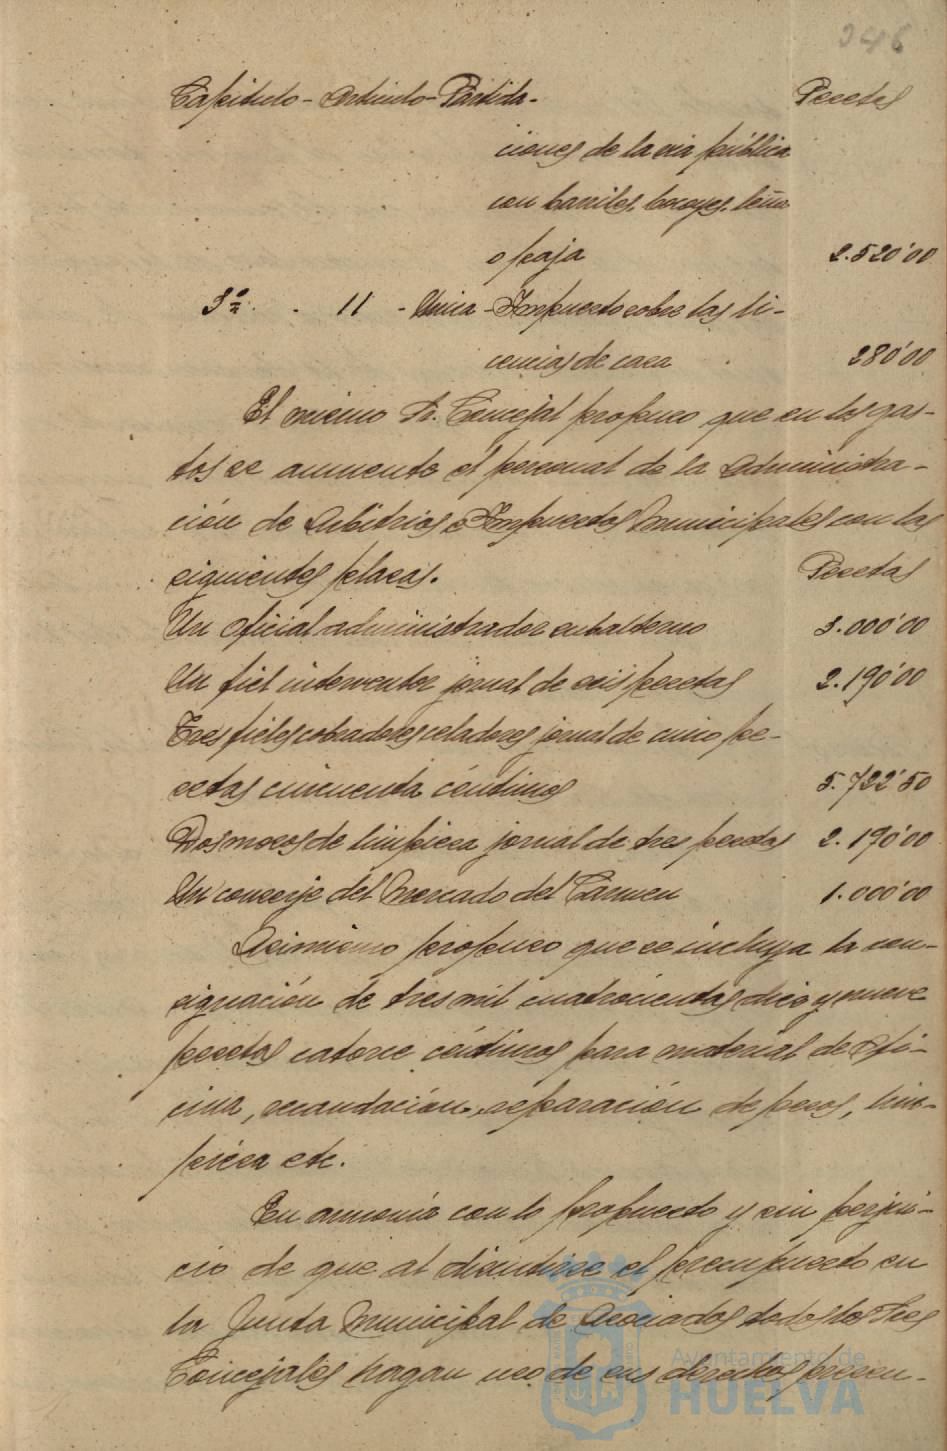 246
Capitulo - Articulo - Partida - Pesetas
ciones de la via pública
con barriles, bocoyes, leña
o paja 2.520'00
3º - 11 - Unica - Impuesto sobre las li-
cencias de caza 280'00
El mismo Sr. Concejal propuso que en los gas-
tos se aumente el personal de la Administra-
ción de Arbitrios e Impuestos Municipales con las
siguientes plazas. Pesetas
Un oficial administrador subalterno 3.000'00
Un fiel interventor jornal de seis pesetas 2.190'00
Tres fieles cobradores celadores jornal de cinco pe-
setas cincuenta céntimos 5.722'50
Dos mozos de limpieza jornal de tres pesetas 2.190'00
Un conserje del Mercado del Carmen 1.000'00
Asimismo propuso que se incluya la con-
signación de tres mil cuatrocientas diez y nueve
pesetas catorce céntimos para material de ofi-
cina, recaudación, reparación de pesos, lim-
pieza etc.
En armonía con lo propuesto y sin perjui-
cio de que al discutirse el presupuesto en
la Junta Municipal de Asociados todos los Sres
Concejales hagan uso de sus derechos presen-
Ayuntamiento de
HUELVA